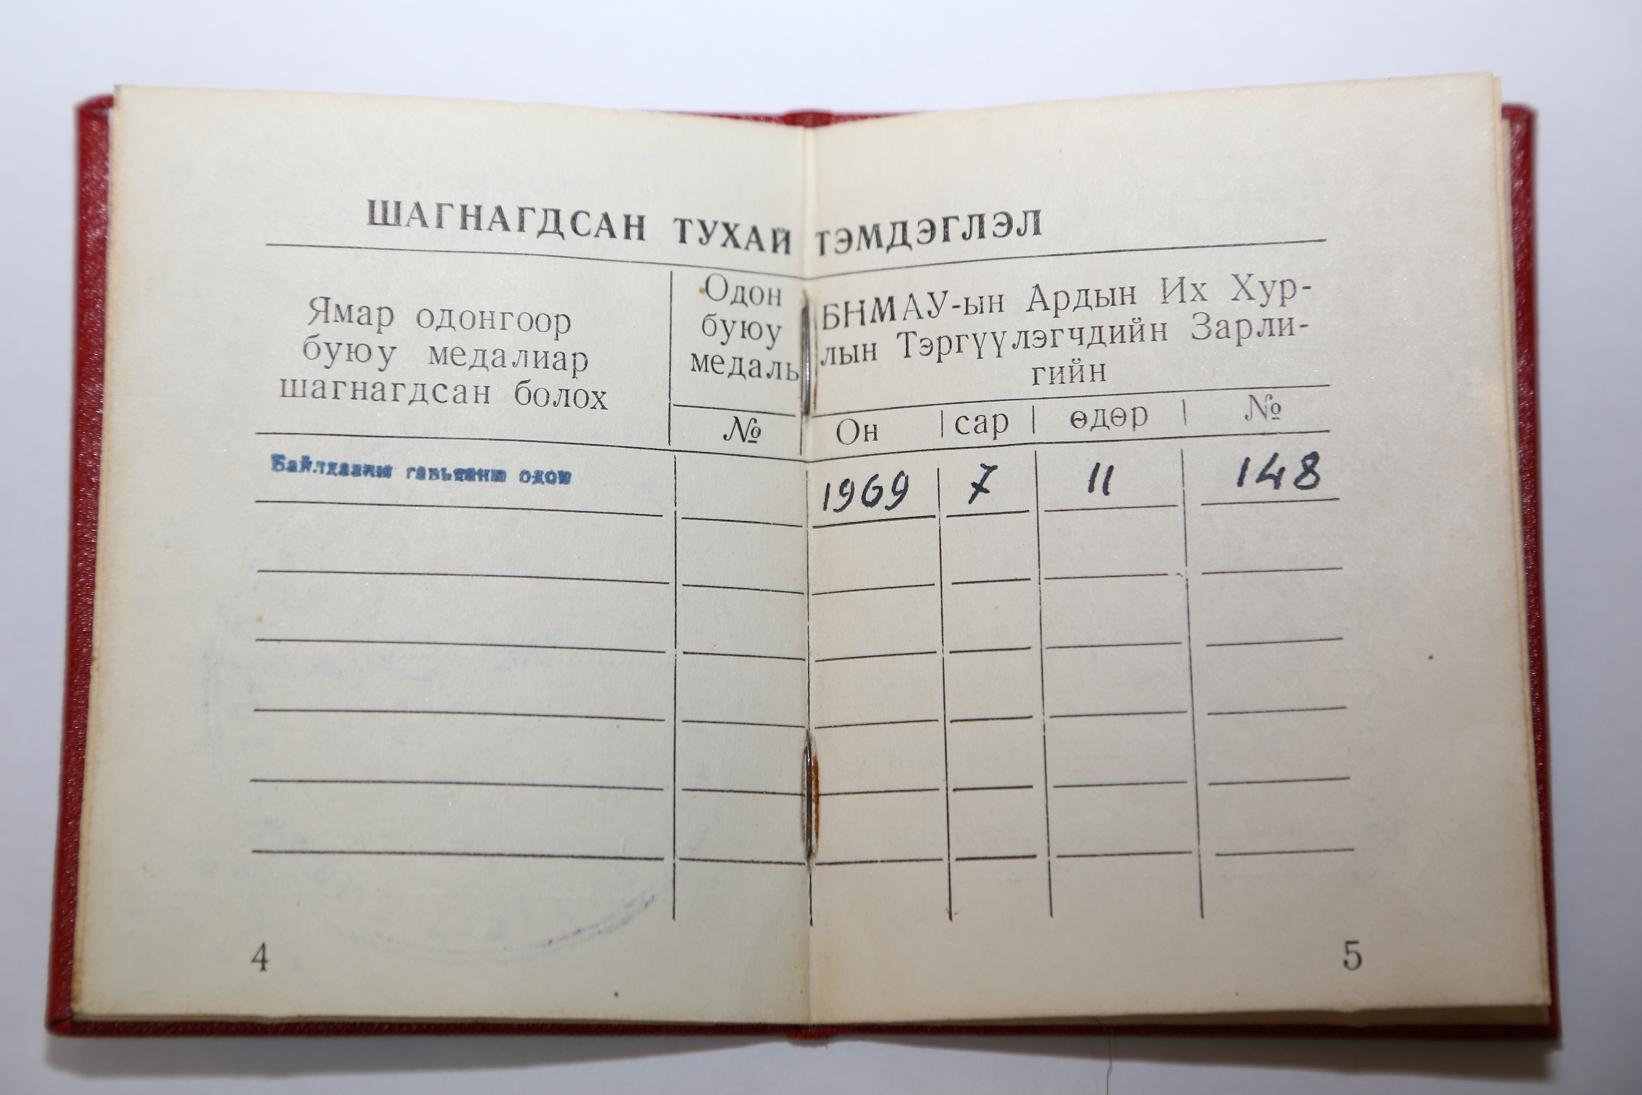 ШАГНАГДСАН ТУХАЙ ТЭМДЭГЛЭЛ
Ямар одонгоор
буюу медалиар
шагнагдсан болох
Одон
буюу
медаль
№
БНМАУ-ын Ардын Их Хур-
лын Тэргүүлэгчдийн Зарли-
гийн
Он сар өдөр №
Байлдааны гавьяаны одон
1969 7 11 148
4
5